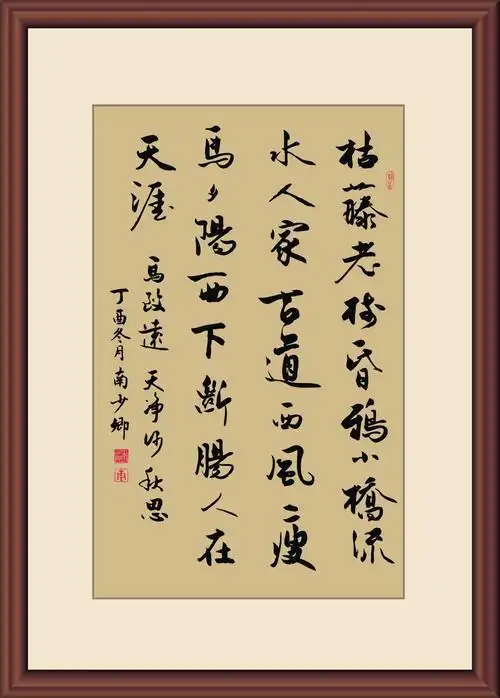 枯藤老樹昏鴉小橋流
水人家古道西風瘦
馬夕陽西下斷腸人在
天涯
馬致遠 天淨沙 秋思
丁酉冬月南少卿